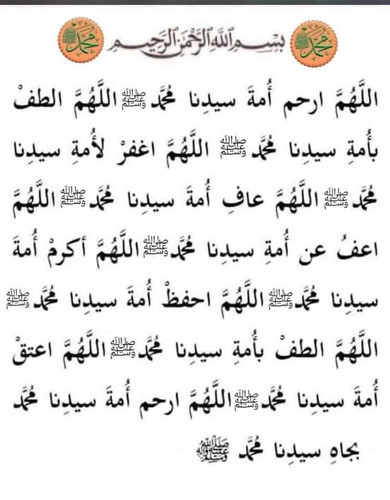 محمد بِسْمِ اللَّهِ الرَّحْمَنِ الرَّحِيمِ محمد
اللَّهُمَّ ارحم أُمةَ سيدِنا مُحَمَّد ﷺ اللَّهُمَّ الطفْ
بأُمةِ سيدِنا مُحَمَّد ﷺ اللَّهُمَّ اغفرْ لأمةِ سيدِنا
مُحَمَّد ﷺ اللَّهُمَّ عافِ أُمةَ سيدِنا مُحَمَّد ﷺ اللَّهُمَّ
اعفُ عن أُمةِ سيدِنا مُحَمَّد ﷺ اللَّهُمَّ أكرمْ أُمةَ
سيدِنا مُحَمَّد ﷺ اللَّهُمَّ احفظْ أُمةَ سيدِنا مُحَمَّد ﷺ
اللَّهُمَّ الطفْ بأُمةِ سيدِنا مُحَمَّد ﷺ اللَّهُمَّ اعتقْ
أُمةَ سيدِنا مُحَمَّد ﷺ اللَّهُمَّ ارحم أُمةَ سيدِنا مُحَمَّد
بجاهِ سيدِنا مُحَمَّد ﷺ